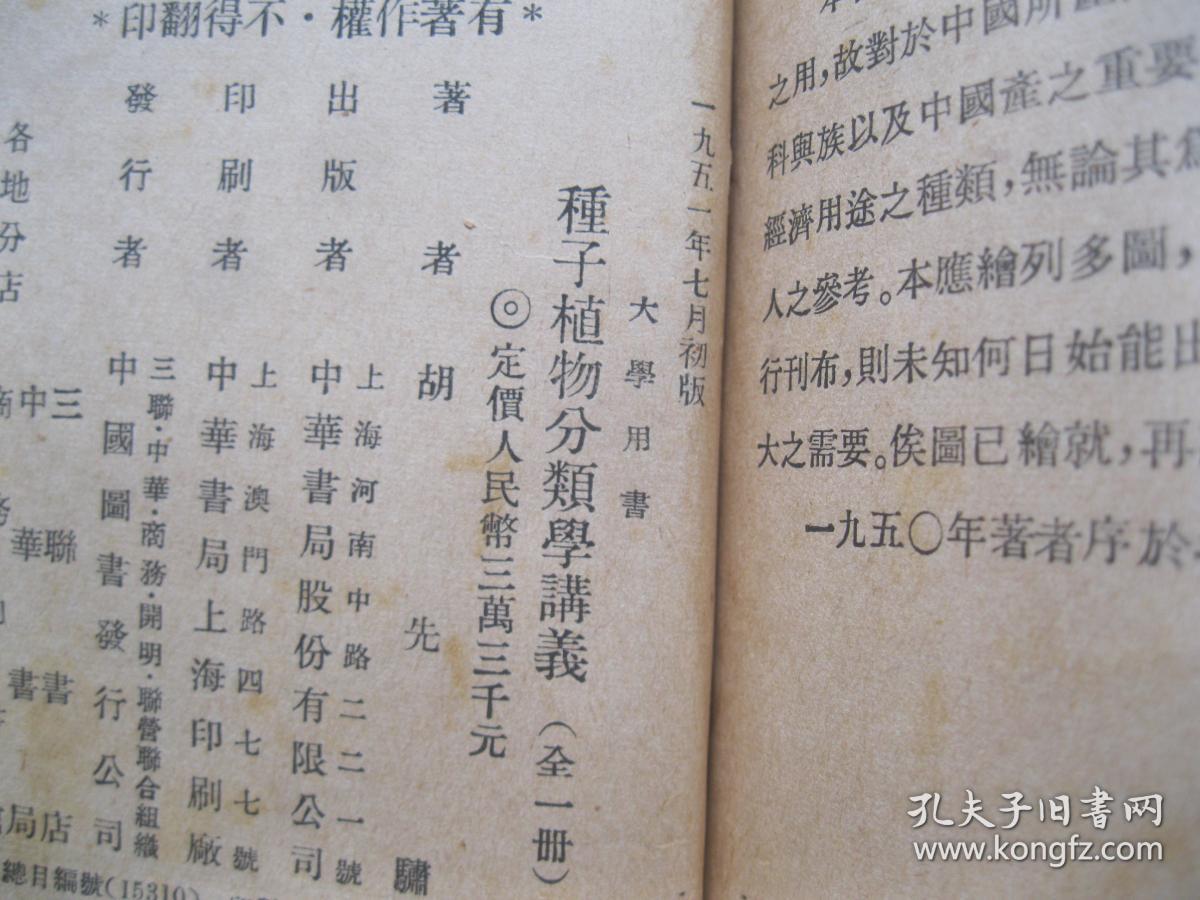 一九五一年七月初版
大學用書
種子植物分類學講義（全一冊）
◎定價人民幣三萬三千元
著者 胡先驌
出版者 中華書局股份有限公司
上海河南中路二二一號
印刷者 中華書局上海印刷廠
上海澳門路四七七號
發行者 中國圖書發行公司
三聯・中華・商務・開明・聯營聯合組織
各地分店
三聯書店
中華書局
＊有著作權・不得翻印＊
總目編號(15310)
之用，故對於中國所
科與族以及中國產之重要
經濟用途之種類，無論其
人之參考。本應繪列多圖，
行刊布，則未知何日始能出
大之需要。俟圖已繪就，再
一九五〇年著者序於
孔夫子旧书网
www.kongfz.com